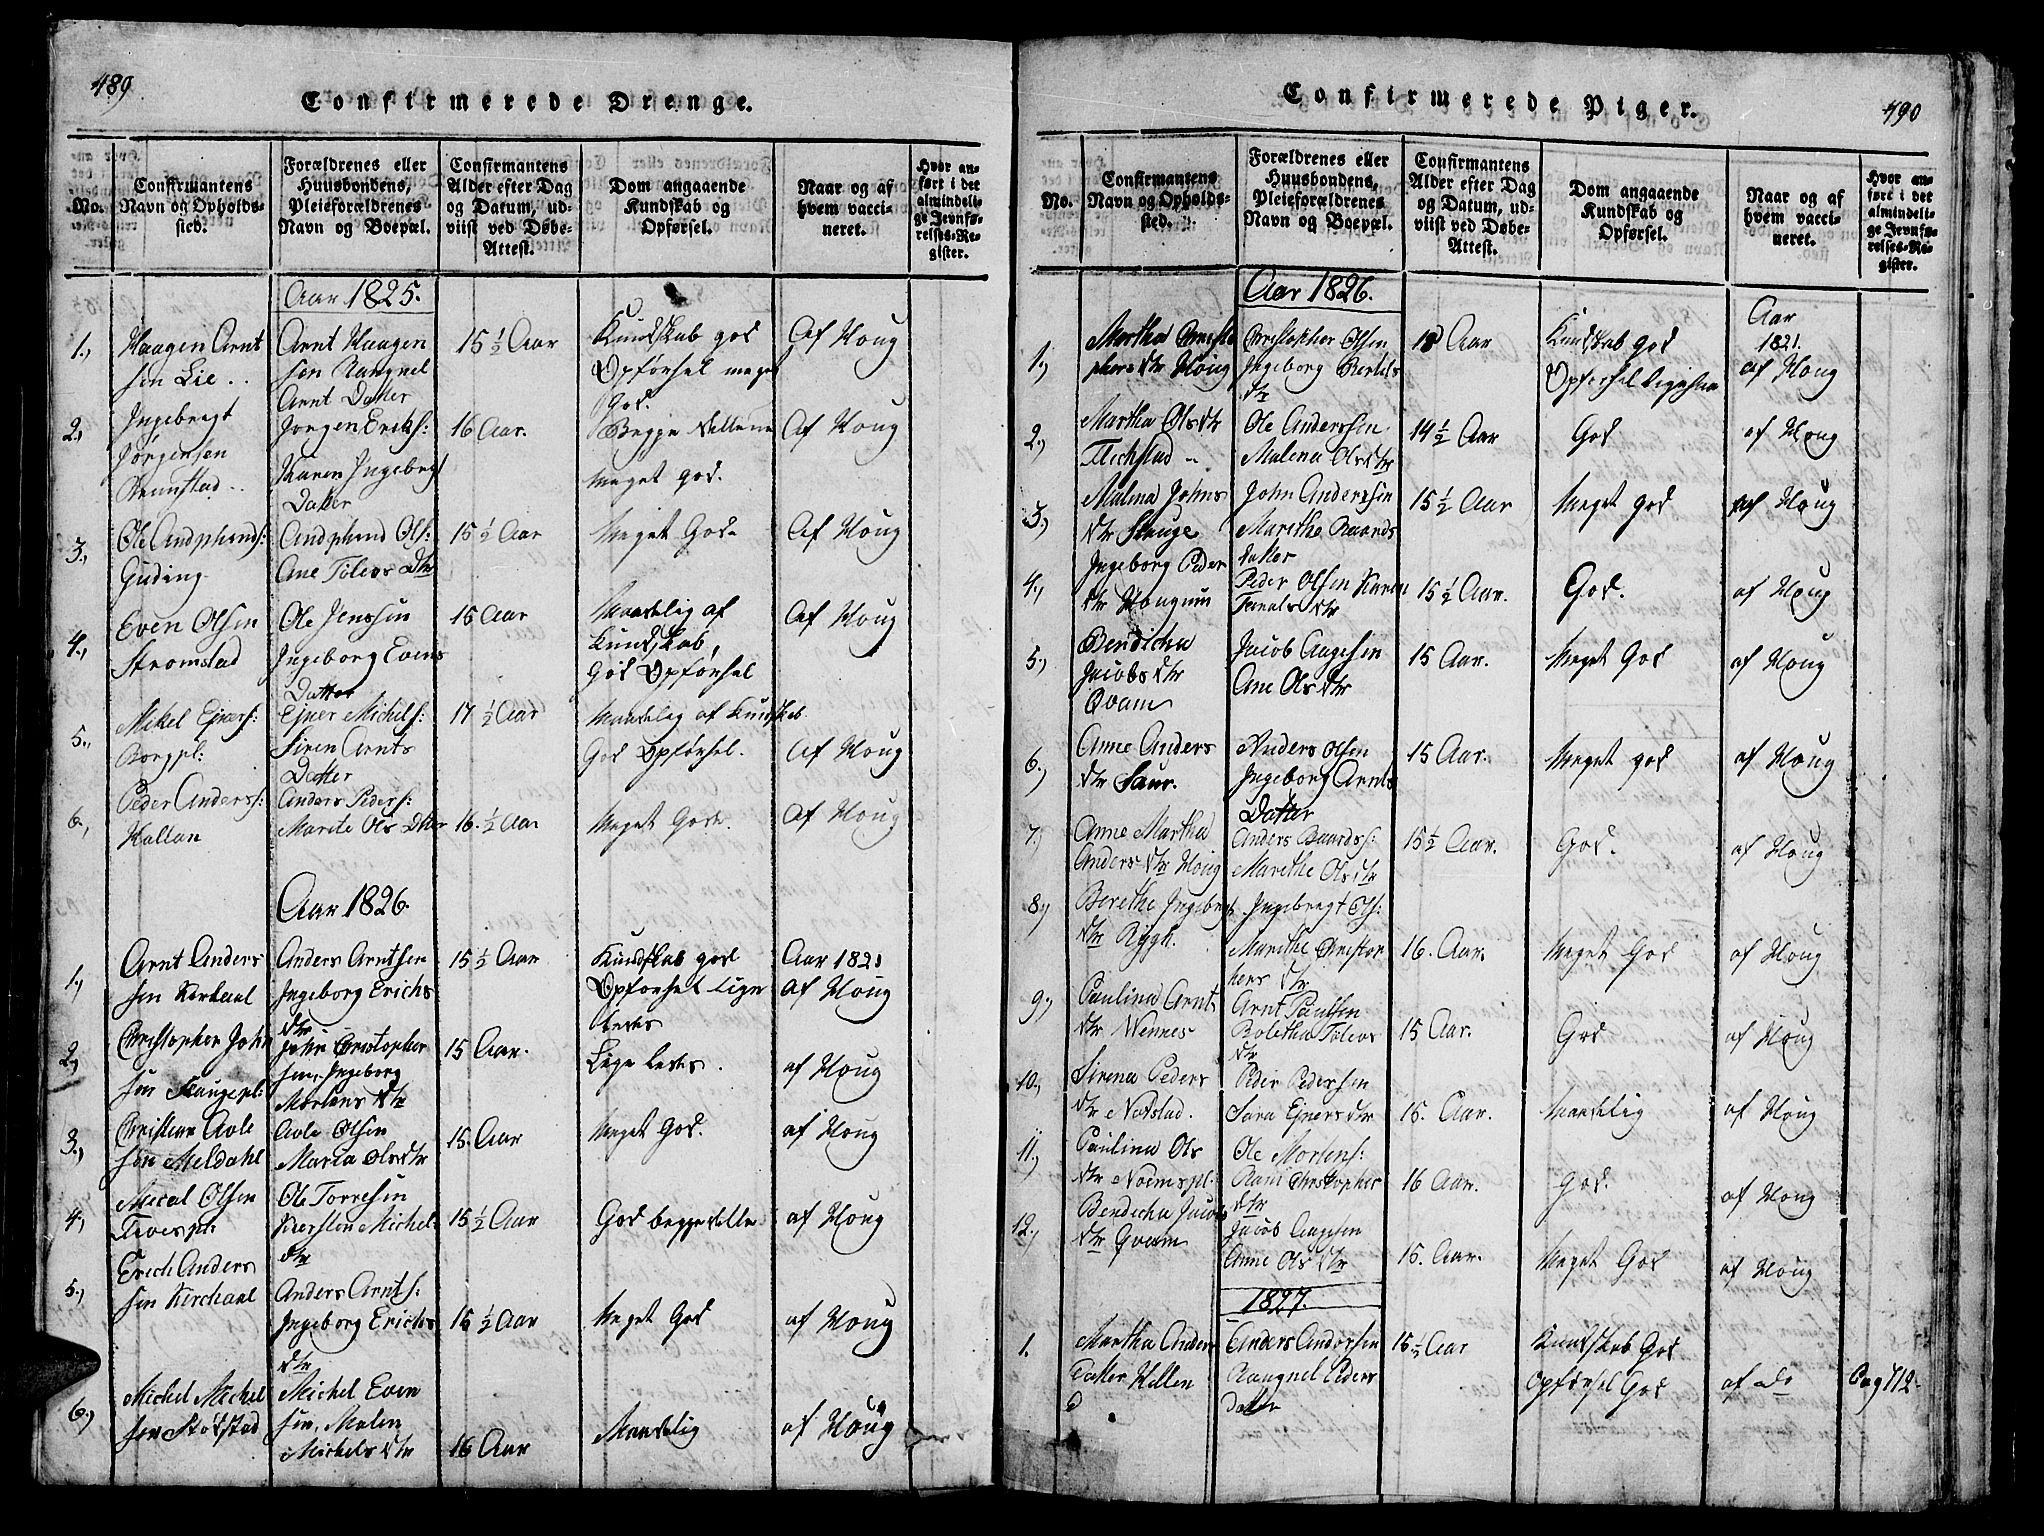 489
Confirmerede Drenge.
No.
Confirmantens Navn og Opholdssted.
Forældrenes eller Huusbondens, Pleieforældrenes Navn og Boepæl.
Confirmantens Alder efter Dag og Datum, udviist ved Døbe-Attest.
Dom angaaende Kundskab og Opførsel.
Naar og af hvem vaccineret.
Hvor anført i det almindelige Jevnførelses-Register.
Aar 1825.
1., Haagen Arnt
sen Lie . .
Arnt Haagen
sen Raagnel
Arnt Datter
15 1/2 Aar
Kundskab god
Opførsel meget
god.
Af Houg
2., Ingebregt
Jørgensen
..
Jørgen Eriks:
Karen Ingebregt
Datter
16 Aar.
Begge Dellene
meget god.
Af Houg
3., Ole Andphends:
Guding
Andphend Ols:
Ane Tolevs Dtr
15 1/2 Aar
Meget God
Af Houg
4., Even Olsen
Stromstad
Ole Jenssen
Ingeborg Evens
Datter
15 Aar
Maadelig af
Kundskab,
God Opførsel
Af Houg
5., Mikel Ejners:
Borgpl:
Ejner Michels:
Siren Arnts
Datter
17 1/2 Aar
Maadelig af Kundskab
God Opførsel.
Af Houg
6., Peder Anders:
Hallan
Anders Peders:
Marite Ols Dtter
16 1/2 Aar
Meget Gode.
Af Houg
Aar 1826.
1., Arnt Anders
sen
Anders Arntsen
Ingeborg Erichs
dtr
15 1/2 Aar
Kundskab god
Opførsel lige
ledes
Aar 1821
af Houg
2., Christopher John
sen Stangepl:
John Christopher
sen, Ingeborg
Mortens dtr
15 Aar.
Lige ledes.
af Houg
3., Christian Avle
sen Meldahl
Avle Olsen
Maria Ols dtr
15 Aar
Meget God.
af Houg
4., Olsen
Ole Torresen
Kiersten Michel:
dtr
15 1/2 Aar
God begge delle
af Houg
5., Erich Anders
sen
Anders Arnts:
Ingeborg Erichs
dtr
15 1/2 Aar
Meget God
af Houg
6., Michel Michel
sen Stokstad
Michel Even
sen, Malen
Michels dtr
16 Aar
Maadelig
af Houg
490
Confirmerede Piger.
No.
Confirmantens Navn og Opholdssted.
Forældrenes eller Huusbondens, Pleieforældrenes Navn og Boepæl.
Confirmantens Alder efter Dag og Datum, udviist ved Døbe-Attest.
Dom angaaende Kundskab og Opførsel.
Naar og af hvem vaccineret.
Hvor anført i det almindelige Jevnførelses-Register.
Aar 1826.
1., Martha Christo
phers dtr Houg
Christopher Olsen
Ingeborg Bertels
dtr
Aar
Kundskab god
Opførsel
Aar
1821.
af Houg
2., Martha Ols dtr
Flechstad
Ole Anderssen
Malena Ols dtr
14 1/2 Aar
God
af Houg
3., Malena Johns
dtr Stange
John Anderssen
Marethe Baards
datter
15 1/2 Aar
Meget god
af Houg
4., Ingeborg Peder
dtr
Peder Olsen Karen
dtr
15 1/2 Aar.
God.
af Houg
5., Bendicha
Jacobs dtr
Qvam
Jacob Aagesen
Ane Ols dtr
15 Aar.
Meget God
af Houg
6., Anne Anders
dtr Saur.
Anders Olsen
Ingeborg Arnts
Datter
15 Aar.
Meget god
af Houg
7., Anne Martha
Anders dtr Houg
Anders Baards:
Marethe Ols dtr
15 1/2 Aar.
God.
af Houg
8., Berethe Ingebregt
dtr Rygh.
Ingebregt Ols:
Marethe Christop
hers dtr
16. Aar.
Meget God
af Houg
9., Paulina Arnts
dtr Wennes
Arnt Paulsen
Bolethe Tolevs
dtr
15 Aar.
God
af Houg
10., Sirena Peders
dtr Natstad.
Peder Pedersen
Sara Ejners dtr
15. Aar.
Maadelig
af Houg
11., Paulina Ols
dtr
Ole Mortens:
Christopher
dtr
16 Aar.
God.
af Houg
12., Bendicha Jacobs
dtr Qvam
Jacob Aagesen
Anne Ols dtr
15. Aar.
Meget God
af Houg
1827.
1. Martha Anders
datter Hellen
Anders Andersen
Raagnel Peders
datter
15 1/2 Aar
Kundskab God
Opførsel God
af Do
Pag 112.